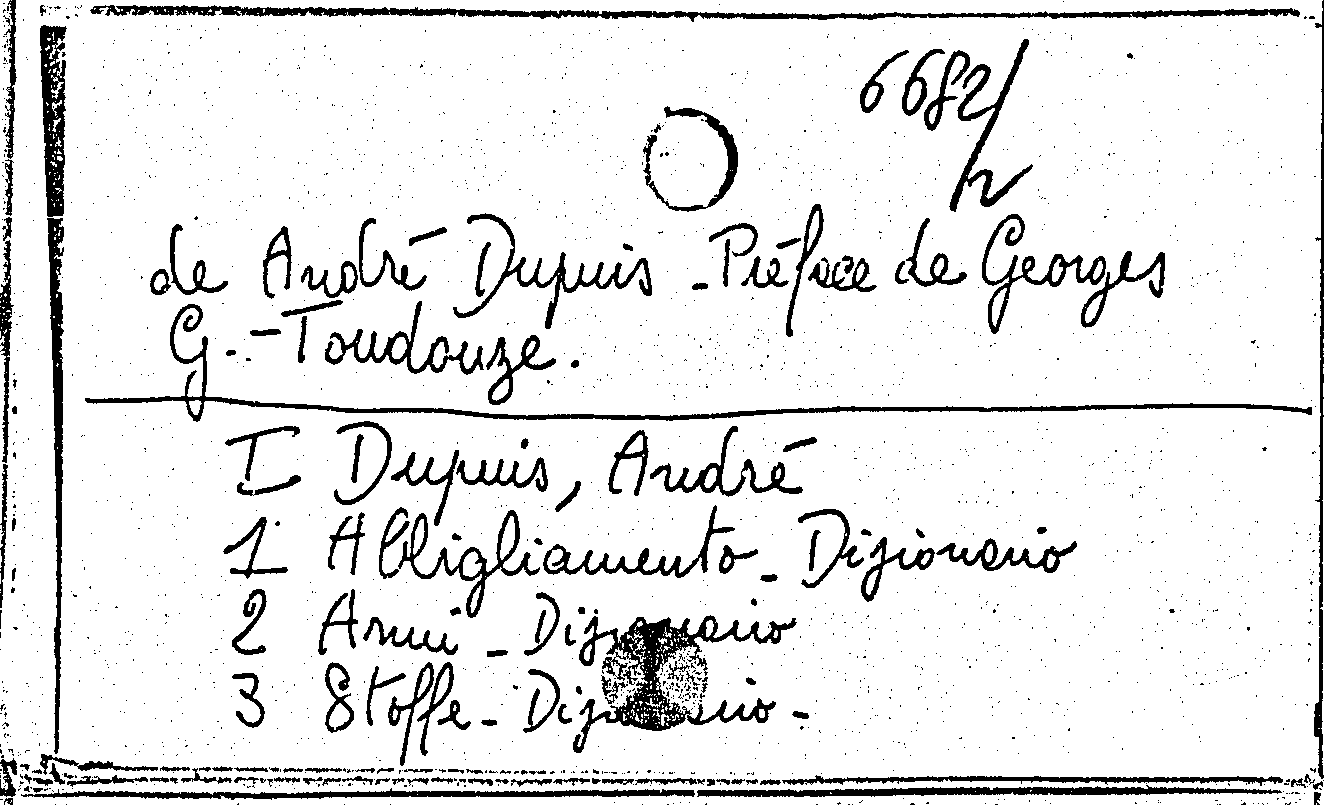 6682/2
de André Dupuis - Préface de Georges
G.-Toudouze.
I Dupuis, André
1 Abbigliamento - Dizionario
2 Armi - Dizionario
3 Stoffe - Dizionario -